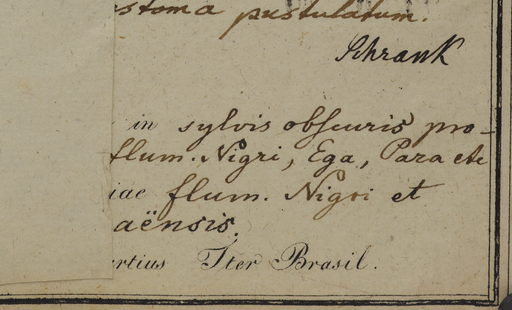 stoma pustulatum.
Schrank
in sylvis obscuris pro-
flum. Nigri, Ega, Para etc
iae flum. Nigri et
aënsis.
rtius Iter Brasil.